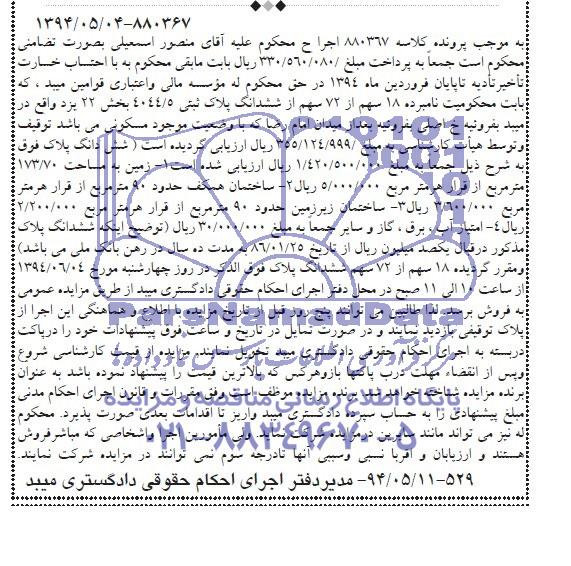 ۱۳۹۴/۰۵/۰۴-۸۸۰۳۶۷
به موجب پرونده کلاسه ۸۸۰۳۶۷ اجرا ح محکوم علیه آقای منصور اسمعیلی بصورت تضامنی
محکوم است جمعاً به پرداخت مبلغ ۳۳۰/۵۶۰/۰۸۰/ ریال بابت مابقی محکوم به با احتساب خسارت
تأخیرتأدیه تاپایان فروردین ماه ۱۳۹۴ در حق محکوم له مؤسسه مالی واعتباری قوامین میبد ، که
بابت محکومیت نامبرده ۱۸ سهم از ۷۲ سهم از ششدانگ پلاک ثبتی ۴۰۴۴/۵ بخش ۲۲ یزد واقع در
میبد بفروئیه خ اصلی بفروئیه بعداز میدان امام رضا که با وضعیت موجود مسکونی می باشد توقیف
وتوسط هیأت کارشناسی به مبلغ ۳۵۵/۱۲۴/۹۹۹/ ریال ارزیابی گردیده است ( شش دانگ پلاک فوق
به شرح ذیل جمعا به مبلغ ۱/۴۲۰/۵۰۰/۰۰۰ ریال ارزیابی شده است۱- زمین به مساحت ۱۷۳/۷۰
مترمربع از قرار هرمتر مربع ۵/۰۰۰/۰۰۰ ریال۲- ساختمان همکف حدود ۹۰ مترمربع از قرار هرمتر
مربع ۳/۶۰۰/۰۰۰ ریال۳- ساختمان زیرزمین حدود ۹۰ مترمربع از قرار هرمتر مربع ۲/۲۰۰/۰۰۰
ریال۴- امتیاز آب ، برق ، گاز و سایر جمعاً به مبلغ ۳۰/۰۰۰/۰۰۰ ریال (توضیح اینکه ششدانگ پلاک
مذکور درقبال یکصد میلیون ریال از تاریخ ۸۶/۰۱/۲۵ به مدت ده سال در رهن بانک ملی می باشد)
ومقرر گردیده ۱۸ سهم از ۷۲ سهم ششدانگ پلاک فوق الذکر در روز چهارشنبه مورخ ۱۳۹۴/۰۶/۰۴
از ساعت ۱۰ الی ۱۱ صبح در محل دفتر اجرای احکام حقوقی دادگستری میبد از طریق مزایده عمومی
به فروش برسد. لذا طالبین می توانند پنج روز قبل از تاریخ مزایده با اطلاع و هماهنگی این اجرا از
پلاک توقیفی بازدید نمایند و درصورت تمایل در تاریخ و ساعت فوق پیشنهادات خود را درپاکت
دربسته به اجرای احکام حقوقی دادگستری میبد تحویل نمایند. مزایده از قیمت کارشناسی شروع
وپس از انقضاء مهلت درب پاکتها بازوهرکس که بالاترین قیمت را پیشنهاد نموده باشد به عنوان
برنده مزایده شناخته خواهد شد. برنده مزایده موظف است وفق مقررات و قانون اجرای احکام مدنی
مبلغ پیشنهادی را به حساب سپرده دادگستری میبد واریز تا اقدامات بعدی صورت پذیرد. محکوم
له نیز می تواند مانند سایرین درمزایده شرکت نماید ولی مأمورین اجرا واشخاصی که مباشرفروش
هستند و ارزیابان و اقربا نسبی وسببی آنها تادرجه سوم نمی توانند در مزایده شرکت نمایند.
۹۴/۰۵/۱۱-۵۲۹- مدیردفتر اجرای احکام حقوقی دادگستری میبد
ParsNamadData
پایگاه اطلاع رسانی مناقصه و مزایده
۰۲۱-۸۸۳۴۹۶۷۰-۵